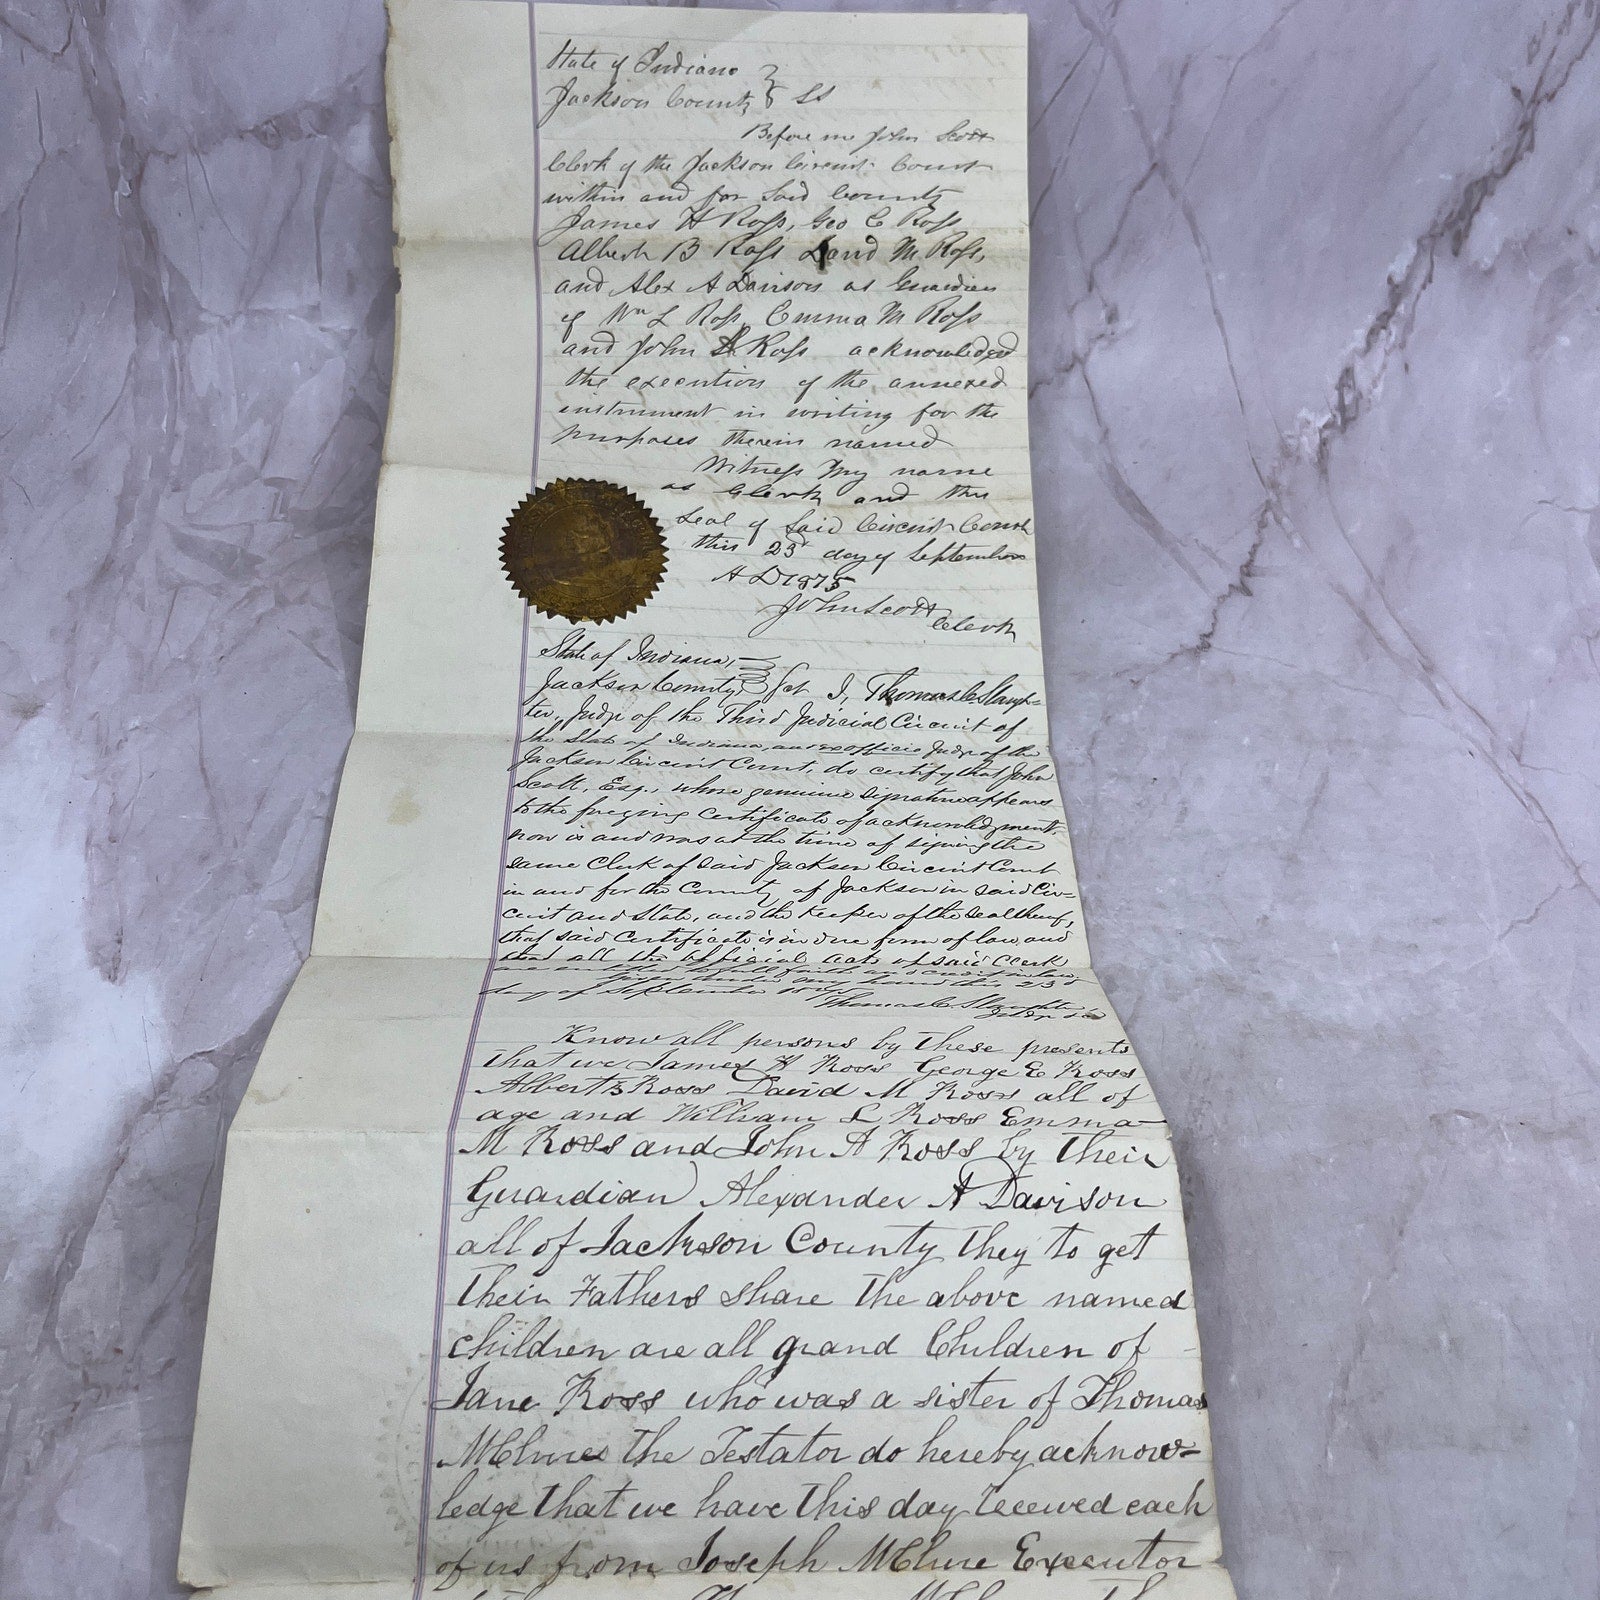 State of Indiana
Jackson County } SS
Before me John Scott
Clerk of the Jackson Circuit Court
within and for Said County
James H Ross, Geo E Ross
Albert B Ross David M Ross,
and Alex A Davison as Guardian
of Wm L Ross, Emma M Ross
and John A Ross acknowledged
the execution of the annexed
instrument in writing for the
purposes therein named
Witness my name
as Clerk and the
Seal of Said Circuit Court
this 23d day of September
A D 1875
John Scott
Clerk
State of Indiana,
Jackson County, } Sct I, Thomas C. Slaugh=
ter, Judge of the Third Judicial Circuit of
the State of Indiana, and ex officio Judge of the
Jackson Circuit Court, do certify that John
Scott, Esq., whose genuine signature appears
to the foregoing certificate of acknowledgment,
now is and was at the time of signing the
same Clerk of said Jackson Circuit Court
in and for the County of Jackson in said Cir=
cuit and State, and the keeper of the seal thereof,
that said certificate is in due form of law, and
that all the official acts of said Clerk
are entitled to full faith and credit in law.
Given under my hand this 23d
day of September 1875
Thomas C. Slaughter,
Know all persons by These presents
that we James H Ross George E Ross
Albert B Ross David M Ross all of
age and William L Ross Emma
M Ross and John A Ross by their
Guardian Alexander A Davison
all of Jackson County they to get
their Fathers share the above named
children are all grand Children of
Jane Ross who was a sister of Thomas
McClure the Testator do hereby acknow=
ledge that we have this day received each
of us from Joseph McClure Executor